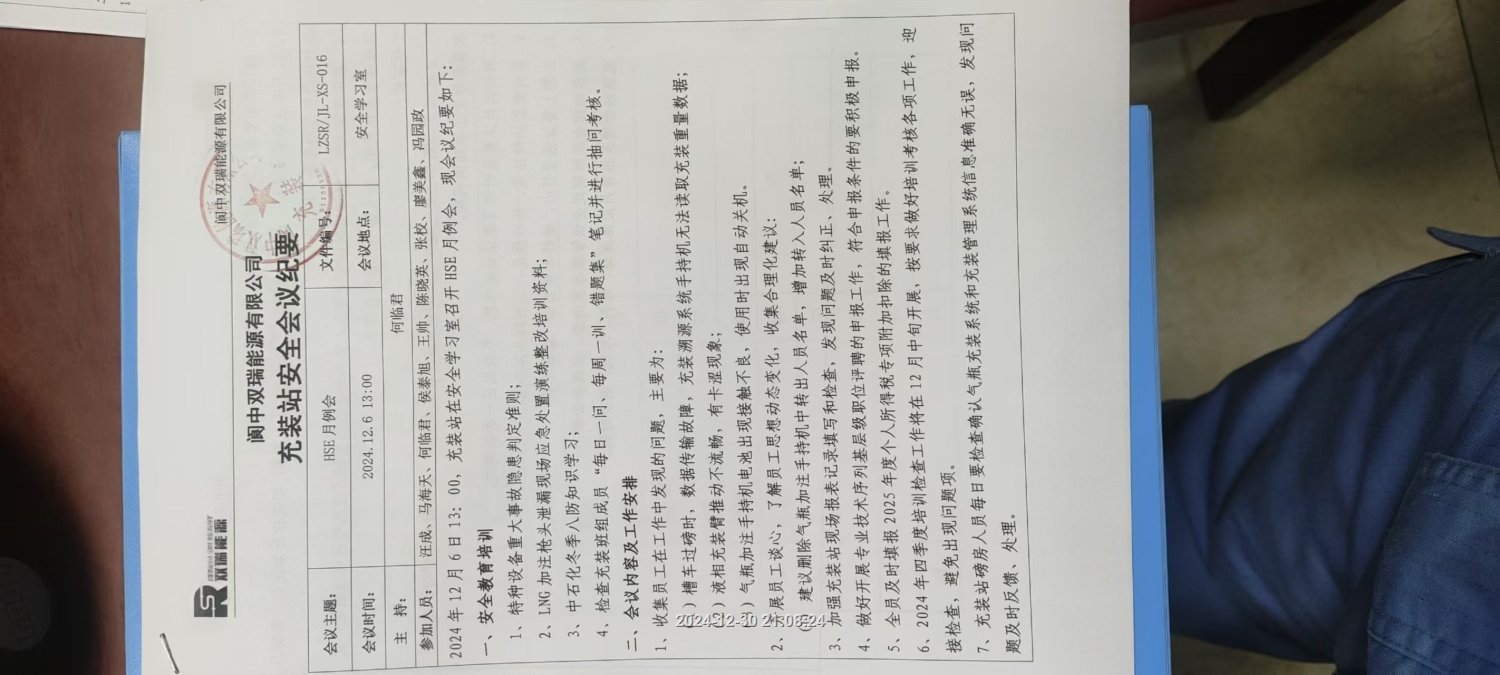 双瑞能源
阆中双瑞能源有限公司
阆中双瑞能源有限公司
充装站安全会议纪要
会议主题： HSE 月例会 文件编号： LZSR/JL-XS-016
会议时间： 2024.12.6 13:00 会议地点： 安全学习室
主 持： 何临君
参加人员： 汪成、马海天、何临君、侯秦旭、王帅、陈晓英、张校、廖美鑫、冯园政
2024 年 12 月 6 日 13：00，充装站在安全学习室召开 HSE 月例会，现会议纪要如下：
一、安全教育培训
1、特种设备重大事故隐患判定准则；
2、LNG 加注枪头泄漏现场应急处置演练整改培训资料；
3、中石化冬季八防知识学习；
4、检查充装班组成员“每日一问、每周一训、错题集”笔记并进行抽问考核。
二、会议内容及工作安排
1、收集员工在工作中发现的问题，主要为：
）槽车过磅时，数据传输故障，充装溯源系统手持机无法读取充装重量数据；
）液相充装臂推动不流畅，有卡涩现象；
）气瓶加注手持机电池出现接触不良，使用时出现自动关机。
2、开展员工谈心，了解员工思想动态变化，收集合理化建议：
建议删除气瓶加注手持机中转出人员名单，增加转入人员名单；
3、加强充装站现场报表记录填写和检查，发现问题及时纠正、处理。
4、做好开展专业技术序列基层级职位评聘的申报工作，符合申报条件的要积极申报。
5、全员及时填报 2025 年度个人所得税专项附加扣除的填报工作。
6、2024 年四季度培训检查工作将在 12 月中旬开展，按要求做好培训考核各项工作，迎
接检查，避免出现问题项。
7、充装站磅房人员每日要检查确认气瓶充装系统和充装管理系统信息准确无误，发现问
题及时反馈、处理。
2024-12-30 21:08:24